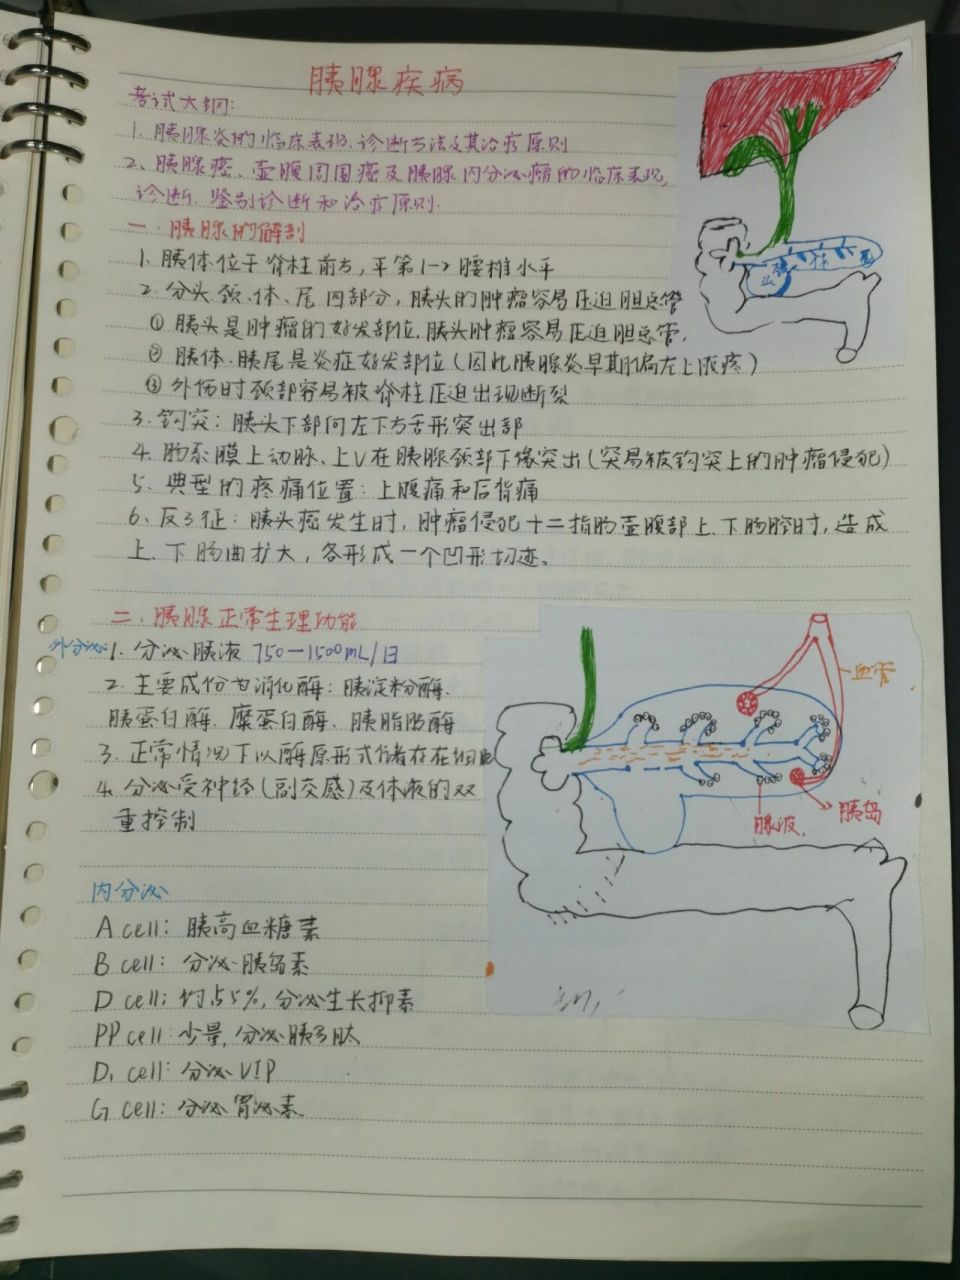 胰腺疾病
考试大纲:
1. 胰腺炎的临床表现、诊断方法及其治疗原则
2、胰腺癌、壶腹周围癌及胰腺内分泌瘤的临床表现,
诊断、鉴别诊断和治疗原则.
一. 胰腺的解剖
1. 胰体位于脊柱前方,平第1-2腰椎水平
2. 分头、颈、体、尾四部分,胰头的肿瘤容易压迫胆总管
① 胰头是肿瘤的好发部位,胰头肿瘤容易压迫胆总管.
② 胰体、胰尾是炎症好发部位(因此胰腺炎早期偏左上腹疼)
③ 外伤时颈部容易被脊柱压迫出现断裂
3. 钩突: 胰头下部向左下方舌形突出部
4. 肠系膜上动脉、上V在胰腺颈部下缘突出(突易被钩突上的肿瘤侵犯)
5、典型的疼痛位置: 上腹痛和后背痛
6、反3征: 胰头癌发生时, 肿瘤侵犯十二指肠壶腹部上、下肠腔时, 造成
上、下肠曲扩大, 各形成一个凹形切迹。
头
颈
体
尾
二. 胰腺正常生理功能
外分泌
1. 分泌胰液 750—1500mL/日
2. 主要成份为消化酶: 胰淀粉酶、
胰蛋白酶、糜蛋白酶、胰脂肪酶
3、正常情况下以酶原形式储存在细胞
4. 分泌受神经(副交感)及体液的双
重控制
血管
腺波
胰岛
内分泌
A cell: 胰高血糖素
B cell: 分泌胰岛素
D cell: 约占5%, 分泌生长抑素
PP cell: 少量, 分泌胰多肽
D₁ cell: 分泌VIP
G cell: 分泌胃泌素